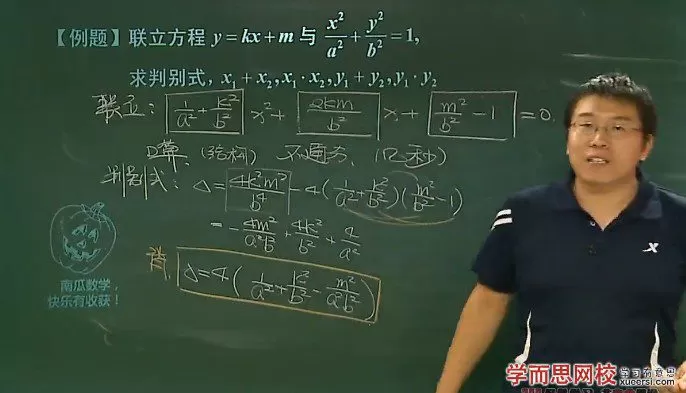 【例题】联立方程 y = kx + m 与 x²/a² + y²/b² = 1,
求判别式, x₁ + x₂, x₁ · x₂, y₁ + y₂, y₁ · y₂
联立: (1/a² + k²/b²) x² + (2km/b²) x + (m²/b² - 1) = 0.
口算. (结构) 不通分. (几秒)
判别式: Δ = 4k²m²/b⁴ - 4(1/a² + k²/b²)(m²/b² - 1)
= -4m²/a²b² + 4k²/b² + 4/a²
Δ = 4(1/a² + k²/b² - m²/a²b²)
南瓜数学,
快乐有收获!
X
学而思网校
学习有意思
xueersi.com